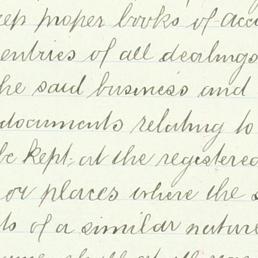 eep proper books of acc
entries of all dealings
he said business and
documents relating to
be kept at the registered
or places where the s
ts of a similar nature